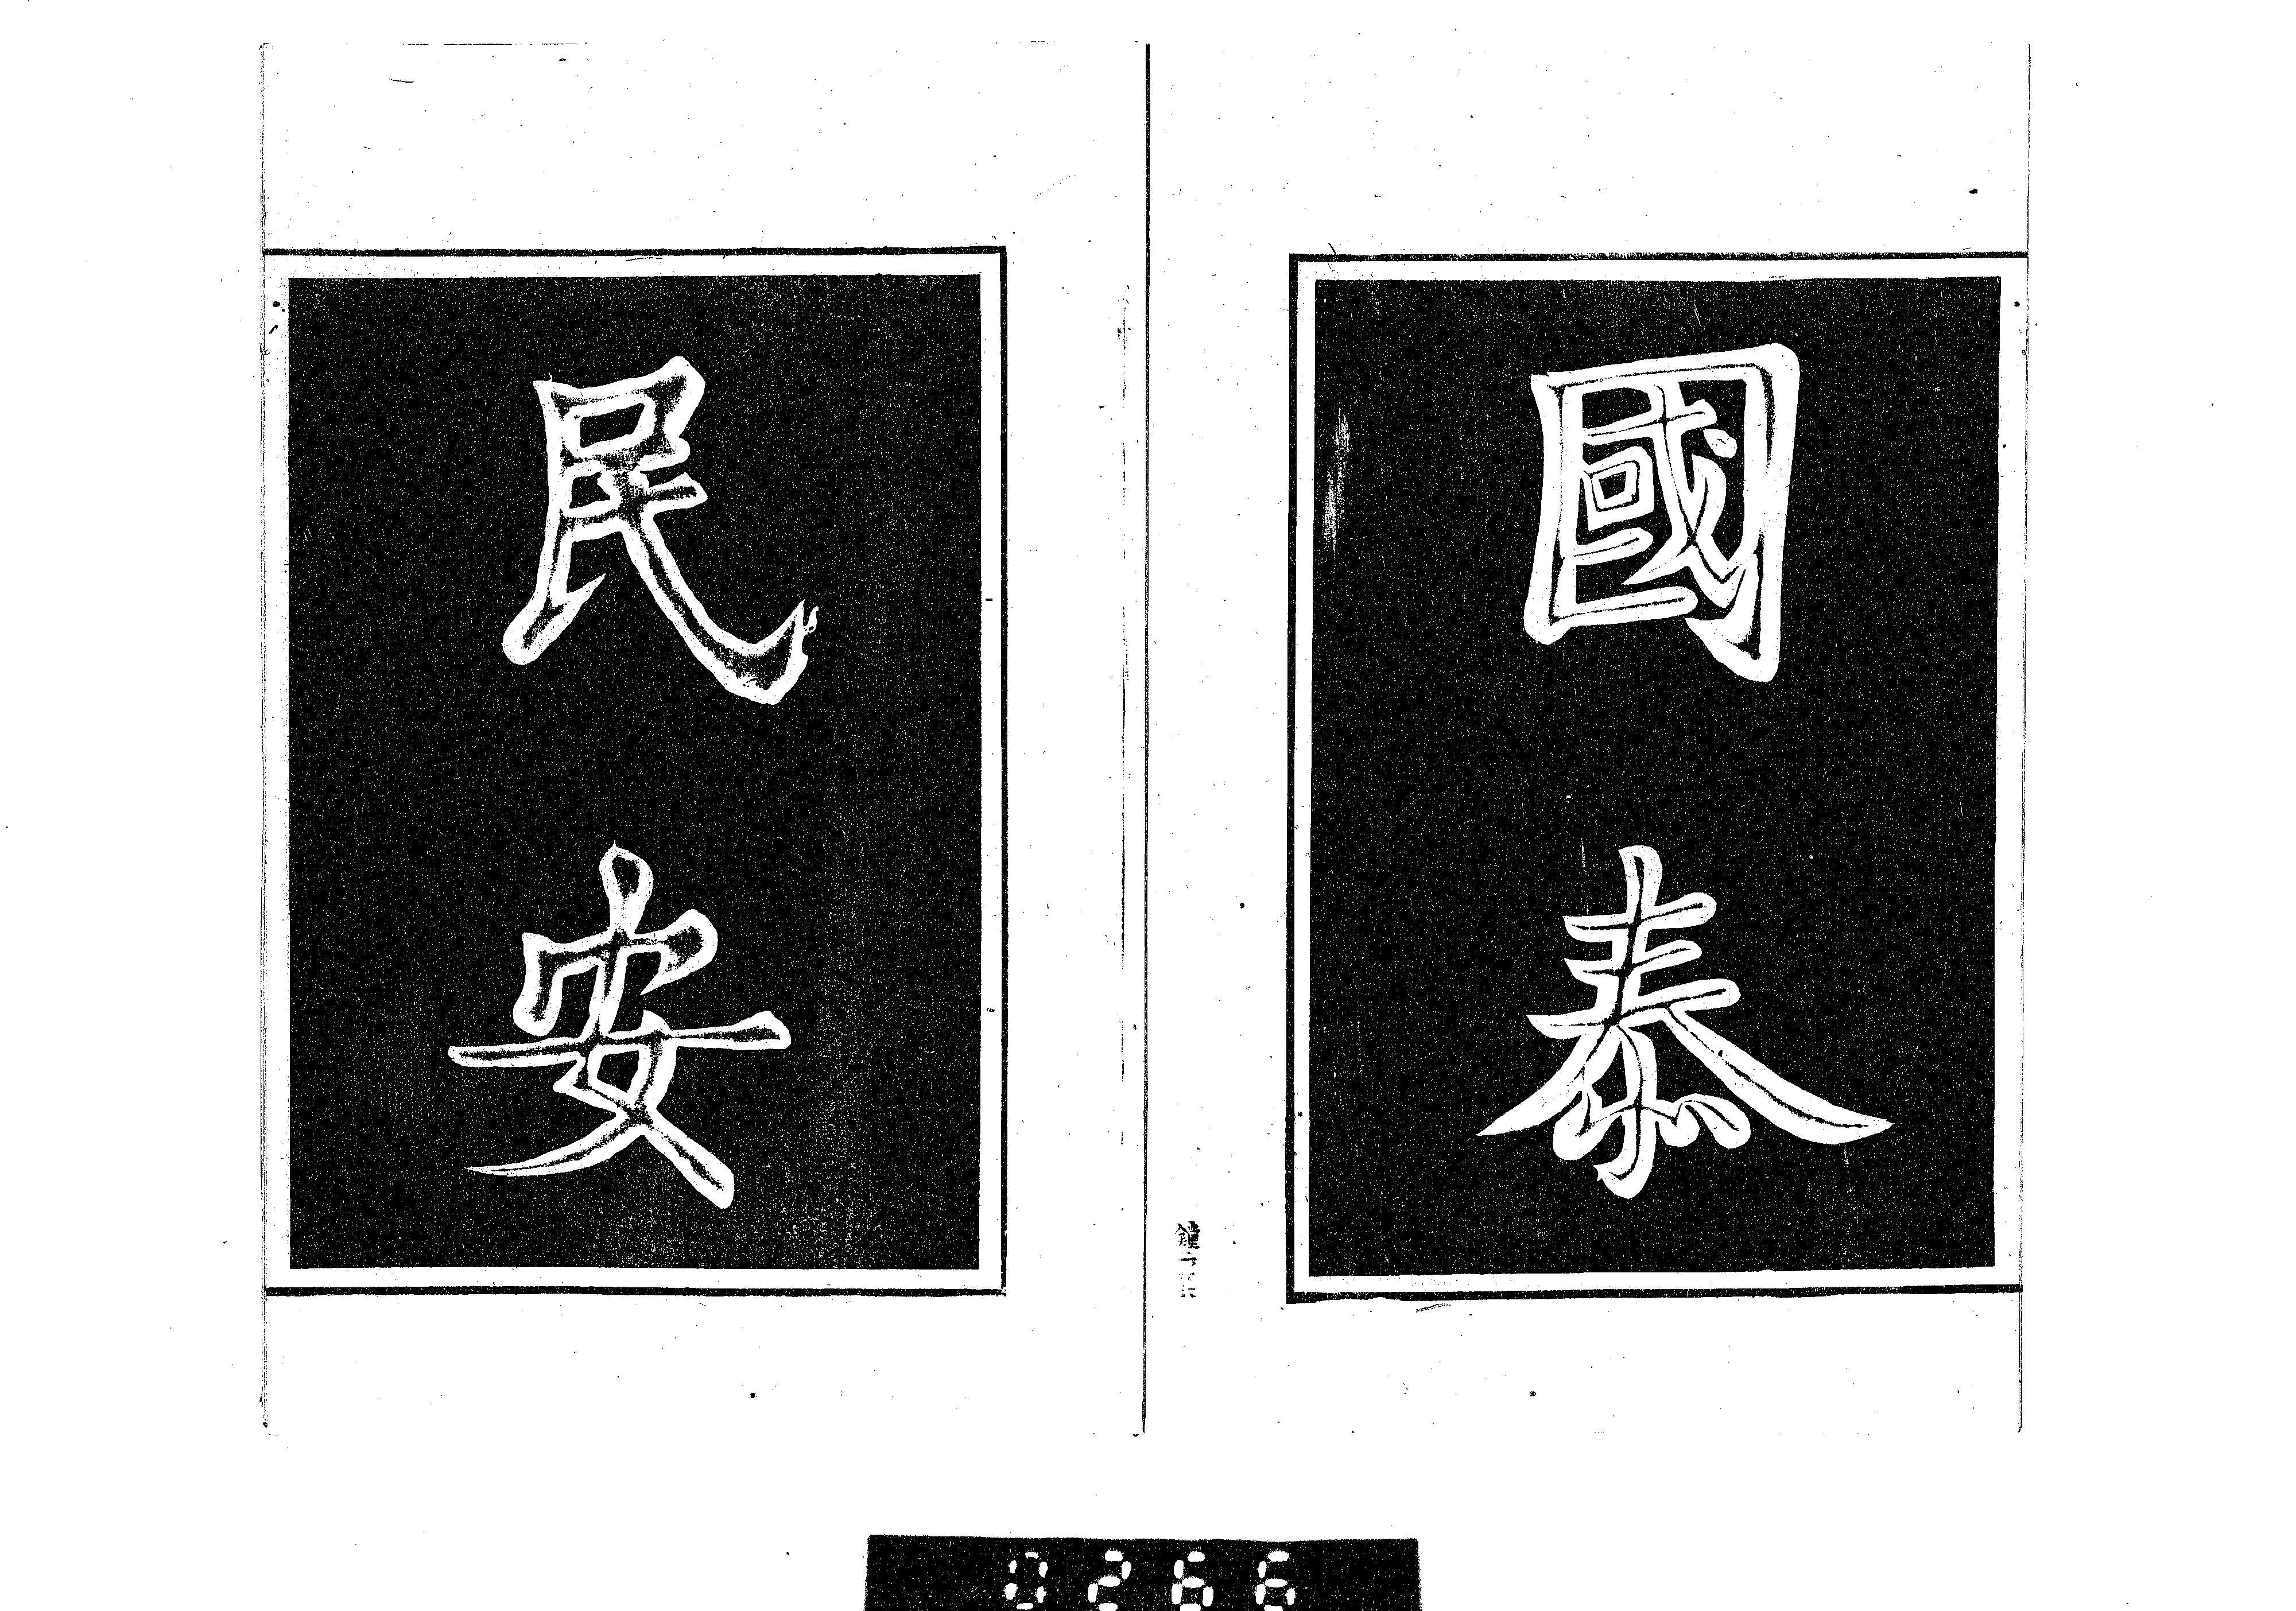 國泰
民安
0266